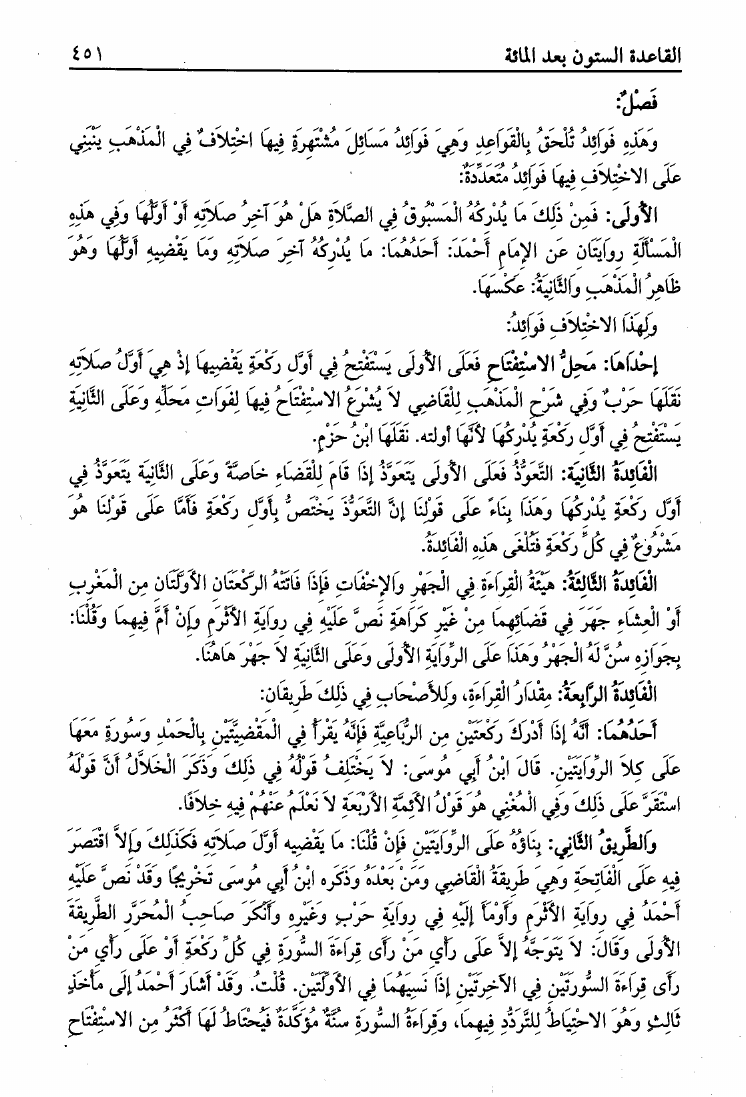 القاعدة الستون بعد المائة ٤٥١
فَصْلٌ:
وَهَذِهِ فَوَائِدُ تُلْحَقُ بِالْقَوَاعِدِ وَهِيَ فَوَائِدُ مَسَائِلَ مُشْتَهِرَةٍ فِيهَا اخْتِلَافٌ فِي الْمَذْهَبِ يَنْبَنِي
عَلَى الاخْتِلَافِ فِيهَا فَوَائِدُ مُتَعَدِّدَةٌ:
الأُولَى: فَمِنْ ذَلِكَ مَا يُدْرِكُهُ الْمَسْبُوقُ فِي الصَّلَاةِ هَلْ هُوَ آخِرُ صَلَاتِهِ أَوْ أَوَّلُهَا وَفِي هَذِهِ
الْمَسْأَلَةِ رِوَايَتَانِ عَنِ الإِمَامِ أَحْمَدَ: أَحَدُهُمَا: مَا يُدْرِكُهُ آخِرَ صَلَاتِهِ وَمَا يَقْضِيهِ أَوَّلُهَا وَهُوَ
ظَاهِرُ الْمَذْهَبِ وَالثَّانِيَةُ: عَكْسُهَا.
وَلِهَذَا الاخْتِلَافِ فَوَائِدُ:
إِحْدَاهَا: مَحِلُّ الاسْتِفْتَاحِ فَعَلَى الأُولَى يَسْتَفْتِحُ فِي أَوَّلِ رَكْعَةٍ يَقْضِيهَا إِذْ هِيَ أَوَّلُ صَلَاتِهِ
نَقَلَهَا حَرْبٌ وَفِي شَرْحِ الْمَذْهَبِ لِلْقَاضِي لاَ يُشْرَعُ الاسْتِفْتَاحُ فِيهَا لِفَوَاتِ مَحَلِّهِ وَعَلَى الثَّانِيَةِ
يَسْتَفْتِحُ فِي أَوَّلِ رَكْعَةٍ يُدْرِكُهَا لأَنَّهَا أولته. نَقَلَهَا ابْنُ حَزْمٍ.
الْفَائِدَةُ الثَّانِيَةُ: التَّعَوُّذُ فَعَلَى الأُولَى يَتَعَوَّذُ إِذَا قَامَ لِلْقَضَاءِ خَاصَّةً وَعَلَى الثَّانِيَةِ يَتَعَوَّذُ فِي
أَوَّلِ رَكْعَةٍ يُدْرِكُهَا وَهَذَا بِنَاءً عَلَى قَوْلِنَا إِنَّ التَّعَوُّذَ يَخْتَصُّ بِأَوَّلِ رَكْعَةٍ فَأَمَّا عَلَى قَوْلِنَا هُوَ
مَشْرُوعٌ فِي كُلِّ رَكْعَةٍ فَتُلْغَى هَذِهِ الْفَائِدَةُ.
الْفَائِدَةُ الثَّالِثَةُ: هَيْئَةُ الْقِرَاءَةِ فِي الْجَهْرِ وَالإِخْفَاتِ فَإِذَا فَاتَتْهُ الرَّكْعَتَانِ الأَوَّلَتَانِ مِنَ الْمَغْرِبِ
أَوْ الْعِشَاءِ جَهَرَ فِي قَضَائِهِمَا مِنْ غَيْرِ كَرَاهَةٍ نَصَّ عَلَيْهِ فِي رِوَايَةِ الأَثْرَمِ وَإِنْ أَمَّ فِيهِمَا وَقُلْنَا:
بِجَوَازِهِ سُنَّ لَهُ الْجَهْرُ وَهَذَا عَلَى الرِّوَايَةِ الأُولَى وَعَلَى الثَّانِيَةِ لاَ جَهْرَ هَاهُنَا.
الْفَائِدَةُ الرَّابِعَةُ: مِقْدَارُ الْقِرَاءَةِ، وَلِلأَصْحَابِ فِي ذَلِكَ طَرِيقَانِ:
أَحَدُهُمَا: أَنَّهُ إِذَا أَدْرَكَ رَكْعَتَيْنِ مِنَ الرُّبَاعِيَّةِ فَإِنَّهُ يَقْرَأُ فِي الْمَقْضِيَّتَيْنِ بِالْحَمْدِ وَسُورَةٍ مَعَهَا
عَلَى كِلاَ الرِّوَايَتَيْنِ. قَالَ ابْنُ أَبِي مُوسَى: لاَ يَخْتَلِفُ قَوْلُهُ فِي ذَلِكَ وَذَكَرَ الْخَلاَّلُ أَنَّ قَوْلَهُ
اسْتَقَرَّ عَلَى ذَلِكَ وَفِي الْمُغْنِي هُوَ قَوْلُ الأَئِمَّةِ الأَرْبَعَةِ لاَ نَعْلَمُ عَنْهُمْ فِيهِ خِلَافًا.
وَالطَّرِيقُ الثَّانِي: بِنَاؤُهُ عَلَى الرِّوَايَتَيْنِ فَإِنْ قُلْنَا: مَا يَقْضِيهِ أَوَّلَ صَلَاتِهِ فَكَذَلِكَ وَإِلاَّ اقْتَصَرَ
فِيهِ عَلَى الْفَاتِحَةِ وَهِيَ طَرِيقَةُ الْقَاضِي وَمَنْ بَعْدَهُ وَذَكَرَه ابْنُ أَبِي مُوسَى تَخْرِيجًا وَقَدْ نَصَّ عَلَيْهِ
أَحْمَدُ فِي رِوَايَةِ الأَثْرَمِ وَأَوْمَأَ إِلَيْهِ فِي رِوَايَةِ حَرْبٍ وَغَيْرِهِ وَأَنْكَرَ صَاحِبُ الْمُحَرَّرِ الطَّرِيقَةَ
الأُولَى وَقَالَ: لاَ يَتَوَجَّهُ إِلاَّ عَلَى رَأْيِ مَنْ رَأَى قِرَاءَةَ السُّورَةِ فِي كُلِّ رَكْعَةٍ أَوْ عَلَى رَأْيِ مَنْ
رَأَى قِرَاءَةَ السُّورَتَيْنِ فِي الآخِرَتَيْنِ إِذَا نَسِيَهُمَا فِي الأَوَّلَتَيْنِ. قُلْتُ. وَقَدْ أَشَارَ أَحْمَدُ إِلَى مَأْخَذٍ
ثَالِثٍ وَهُوَ الاحْتِيَاطُ لِلتَّرَدُّدِ فِيهِمَا، وَقِرَاءَةُ السُّورَةِ سُنَّةٌ مُؤَكَّدَةٌ فَيُحْتَاطُ لَهَا أَكْثَرُ مِنَ الاسْتِفْتَاحِ